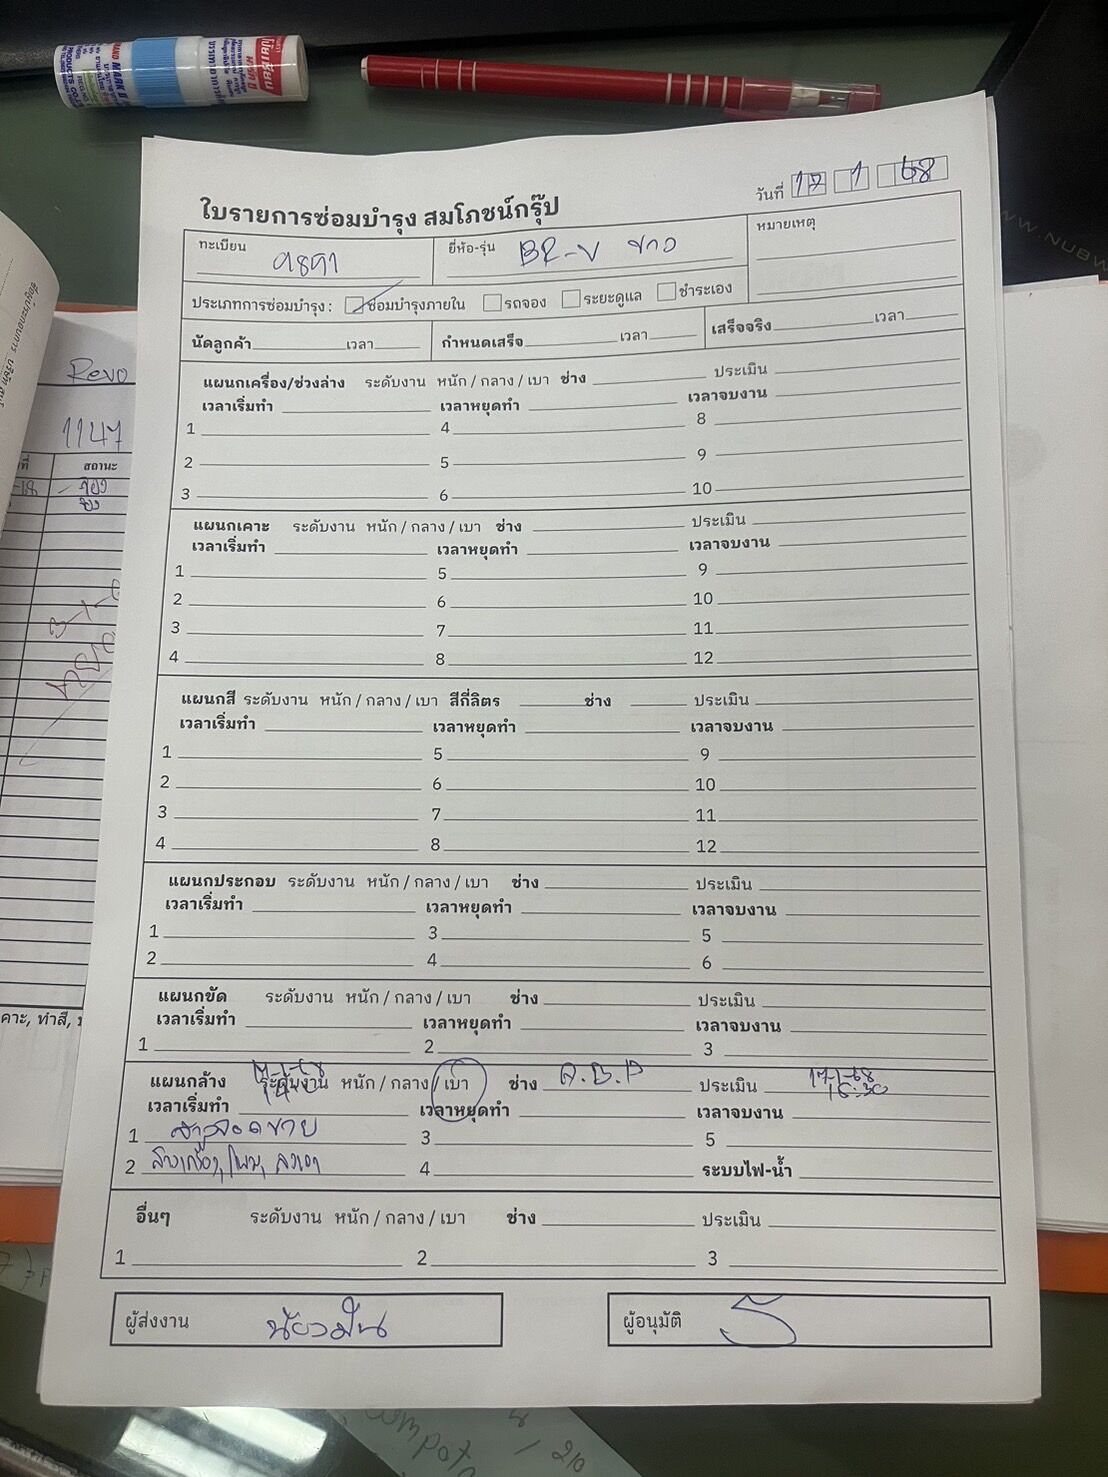 วันที่ 17 1 68
ใบรายการซ่อมบำรุง สมโภชน์กรุ๊ป
ทะเบียน
ยี่ห้อ-รุ่น BR-V ขาว
หมายเหตุ
ประเภทการซ่อมบำรุง : ซ่อมบำรุงภายใน รถจอง ระยะดูแล ชำระเอง
นัดลูกค้า เวลา กำหนดเสร็จ เวลา เสร็จจริง เวลา
แผนกเครื่อง/ช่วงล่าง ระดับงาน หนัก / กลาง / เบา ช่าง ประเมิน
เวลาเริ่มทำ เวลาหยุดทำ เวลาจบงาน
1 4 8
2 5 9
3 6 10
แผนกเคาะ ระดับงาน หนัก / กลาง / เบา ช่าง ประเมิน
เวลาเริ่มทำ เวลาหยุดทำ เวลาจบงาน
1 5 9
2 6 10
3 7 11
4 8 12
แผนกสี ระดับงาน หนัก / กลาง / เบา สีกี่ลิตร ช่าง ประเมิน
เวลาเริ่มทำ เวลาหยุดทำ เวลาจบงาน
1 5 9
2 6 10
3 7 11
4 8 12
แผนกประกอบ ระดับงาน หนัก / กลาง / เบา ช่าง ประเมิน
เวลาเริ่มทำ เวลาหยุดทำ เวลาจบงาน
1 3 5
2 4 6
แผนกขัด ระดับงาน หนัก / กลาง / เบา ช่าง ประเมิน
เวลาเริ่มทำ เวลาหยุดทำ เวลาจบงาน
1 2 3
แผนกล้าง ระดับงาน หนัก / กลาง / เบา ช่าง ประเมิน 17-1-68
เวลาเริ่มทำ เวลาหยุดทำ เวลาจบงาน 16:30
1 3 5
2 4 ระบบไฟ-น้ำ
อื่นๆ ระดับงาน หนัก / กลาง / เบา ช่าง ประเมิน
1 2 3
ผู้ส่งงาน
ผู้อนุมัติ
Revo
1147
สถานะ
จอง
คาะ, ทำสี,